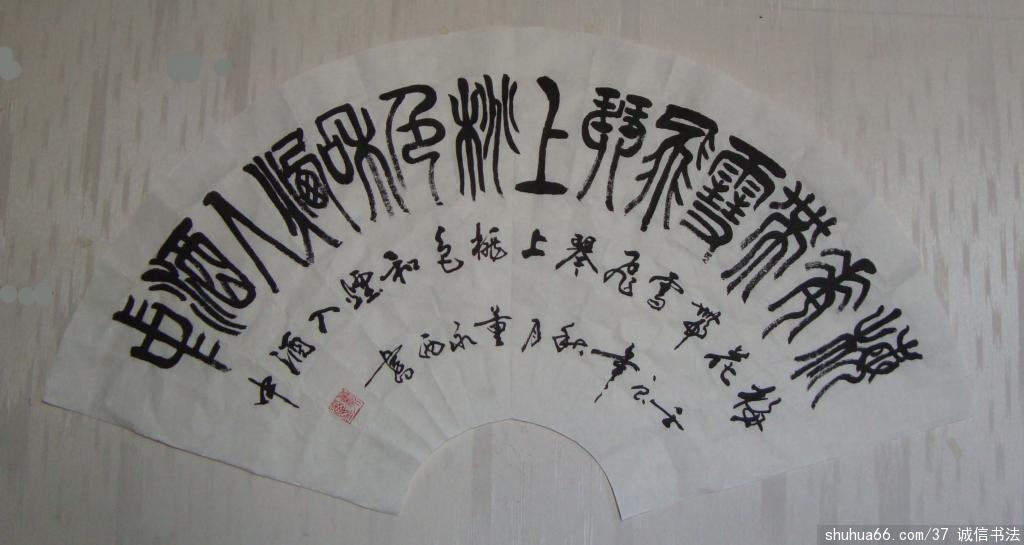 梅花帶雪飛琴上桃色和煙入酒中
梅花帶雪飛琴上桃色和煙入酒中
年秋月董永西書
shuhua66.com/37 诚信书法